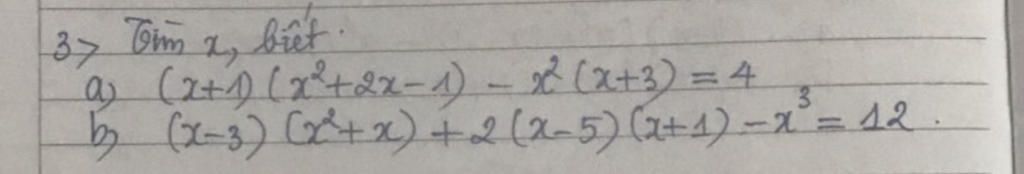 3> Tìm x, biết.
a) (x+1)(x²+2x-1) - x²(x+3) = 4
b) (x-3)(x²+x) + 2(x-5)(x+1) - x³ = 12.